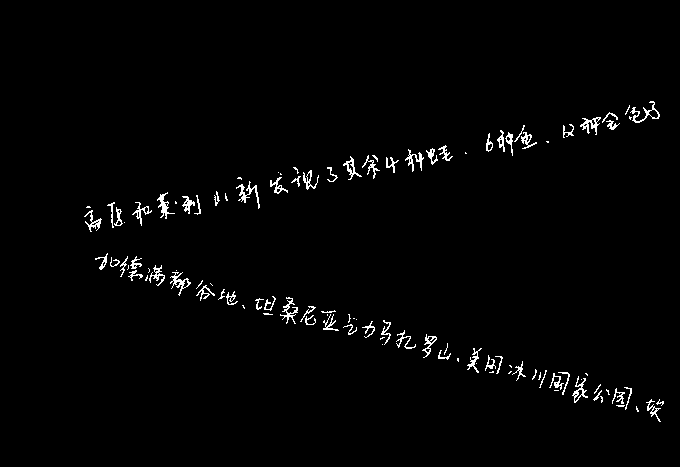 高原和莱利山新发现了其余4种蛙、6种鱼、12种金龟子
加德满都谷地、坦桑尼亚乞力马扎罗山、美国冰川国家公园、埃